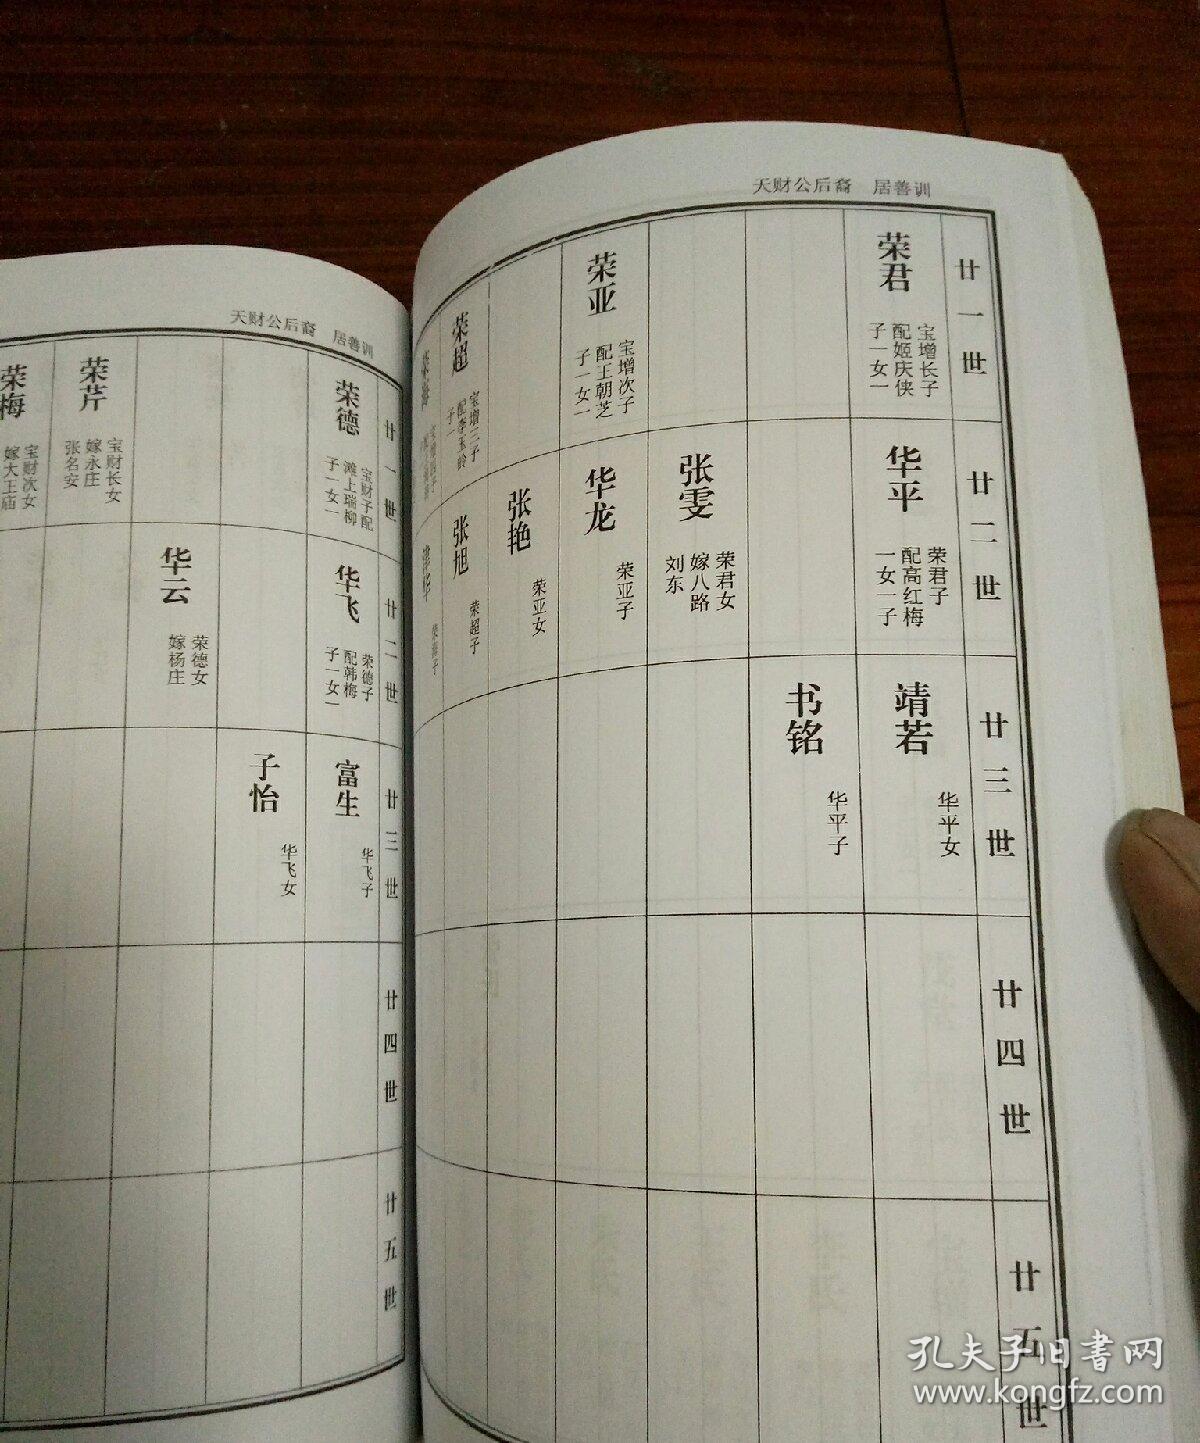 天财公后裔 居善训
廿一世
荣君
宝增长子
配姬庆侠
子一女一
荣亚
宝增次子
配王朝芝
子一女一
荣超
宝增三子
配李玉岭
子一
廿二世
华平
荣君子
配高红梅
一女一子
张雯
荣君女
嫁八路
刘东
华龙
荣亚子
张艳
荣亚女
张旭
荣超子
廿三世
靖若
华平女
书铭
华平子
廿四世
廿五世
天财公后裔 居善训
廿一世
荣德
宝财子配
滩上瑞柳
子一女一
荣芹
宝财长女
嫁永庄
张名安
荣梅
宝财次女
嫁大王庙
廿二世
华飞
荣德子
配韩梅
子一女一
华云
荣德女
嫁杨庄
廿三世
富生
华飞子
子怡
华飞女
廿四世
廿五世
孔夫子旧书网
www.kongfz.com